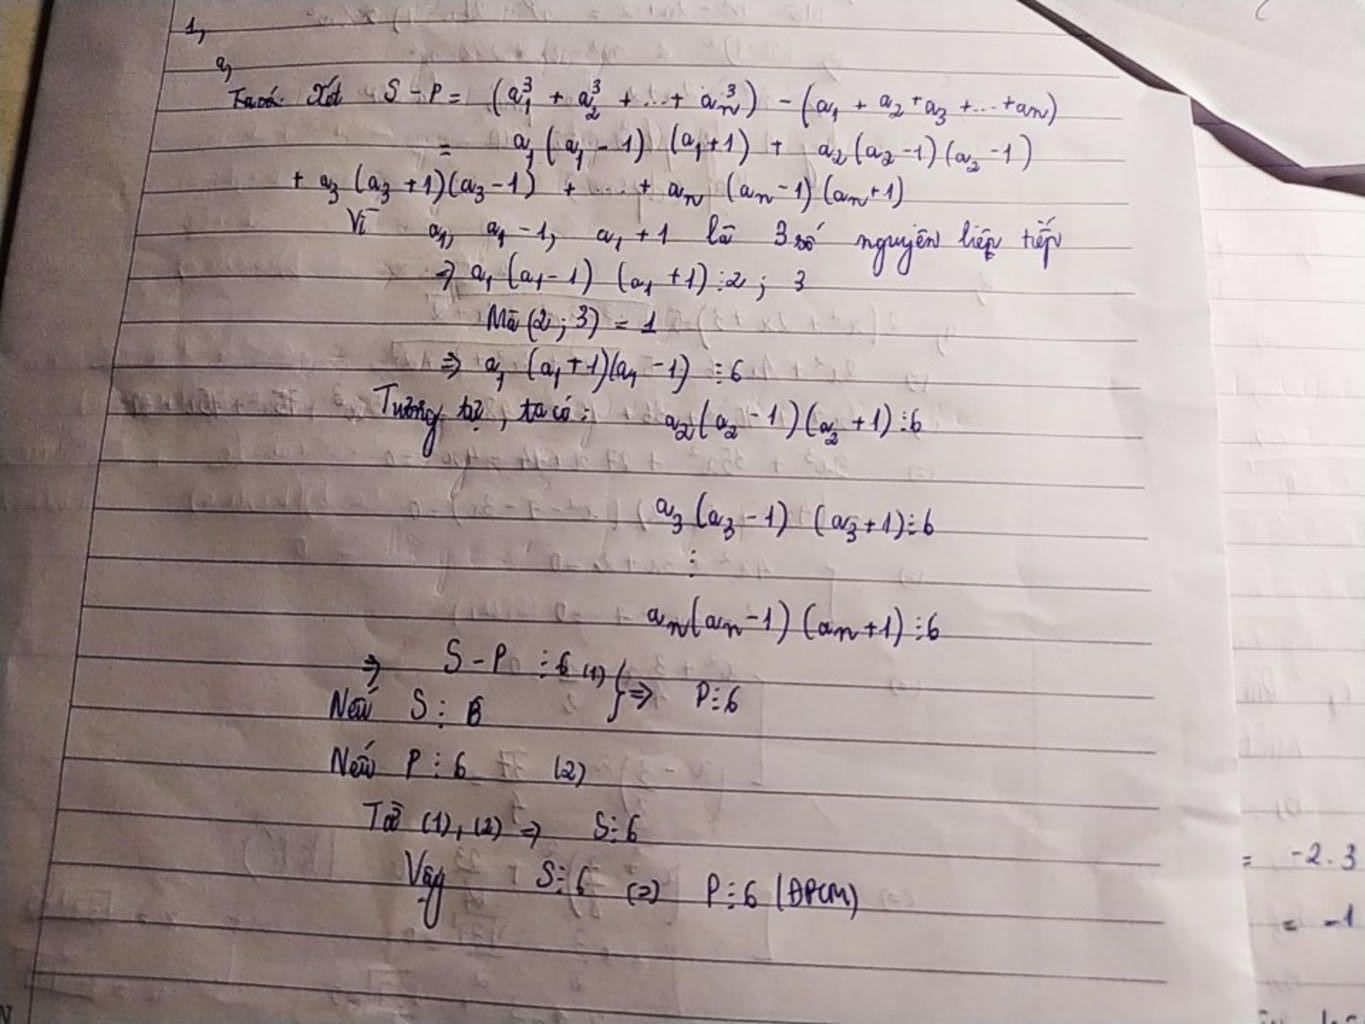 1,
a,
Ta có: Xét S - P = (a₁³ + a₂³ + ... + aₙ³) - (a₁ + a₂ + a₃ + ... + aₙ)
= a₁(a₁ - 1)(a₁ + 1) + a₂(a₂ - 1)(a₂ - 1)
+ a₃(a₃ + 1)(a₃ - 1) + ... + aₙ(aₙ - 1)(aₙ + 1)
Vì a₁, a₁ - 1, a₁ + 1 là 3 số nguyên liếp tiếp
⇒ a₁(a₁ - 1)(a₁ + 1) ⋮ 2; 3
Mà (2; 3) = 1
⇒ a₁(a₁ + 1)(a₁ - 1) ⋮ 6
Tương tự, ta có: a₂(a₂ - 1)(a₂ + 1) ⋮ 6
a₃(a₃ - 1)(a₃ + 1) ⋮ 6
⋮
aₙ(aₙ - 1)(aₙ + 1) ⋮ 6
⇒ S - P ⋮ 6 (1) } ⇒ P ⋮ 6
Nếu S ⋮ 6
Nếu P ⋮ 6 (2)
Từ (1), (2) ⇒ S ⋮ 6
Vậy S ⋮ 6 (=) P ⋮ 6 (ĐPCM)
= -2.3
= -1